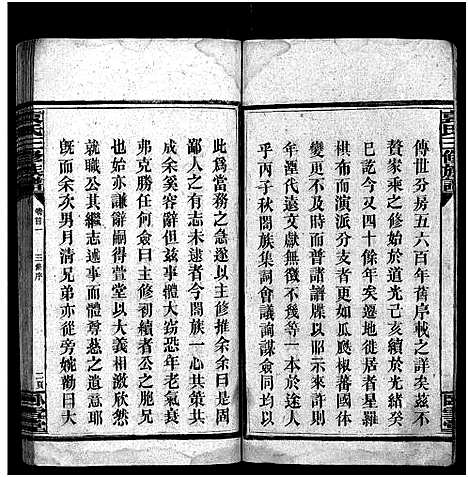 傳世分房五六百年舊序載之詳矣茲不
贅家乘之修始於道光己亥續於光緒癸
卯歷今又四十餘年矣遷地徙居者星羅
棋布而演派分支者更如瓜瓞椒蕃國体
變更不有普諸譜牒以昭示來許則
一本所生不遠年代遠文獻無徵不幾等
乎丙子秋闔族集詞會議詢謀僉同余曰
此爲當務之急遂以主修推余余曰是固
鄙人之有志未逮者今闔族一心共策其
成余奚容辭但茲事體大竊恐年老氣衰
弗克勝任何僉曰主修初續者公之胞兄
寅堂也亦謙辭嗣得萱堂以大義相激欣然
就職公其繼志述事而體尊慈之遺意耶
既而余次男月清兄弟亦從旁婉勸曰大
袁氏三修族譜
卷首一
三修序
二頁
臥雪堂